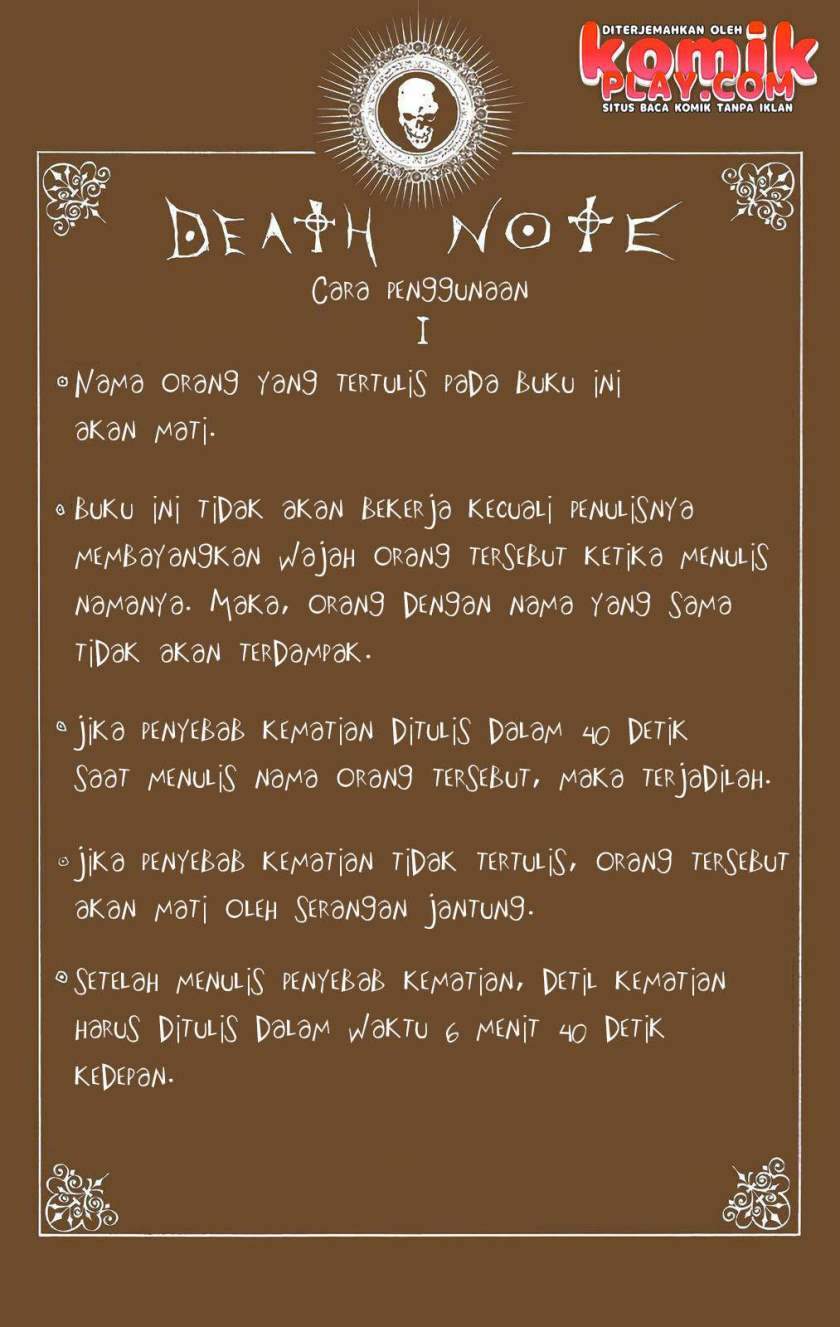 DITERJEMAHKAN OLEH
komik
PLAY.COM
SITUS BACA KOMIK TANPA IKLAN
DEATH NOTE
Cara penggunaan
I
Nama orang yang tertulis pada buku ini
akan mati.
Buku ini tidak akan bekerja kecuali penulisnya
membayangkan wajah orang tersebut ketika menulis
namanya. Maka, orang dengan nama yang sama
tidak akan terdampak.
Jika penyebab kematian ditulis dalam 40 detik
saat menulis nama orang tersebut, maka terjadilah.
Jika penyebab kematian tidak tertulis, orang tersebut
akan mati oleh serangan jantung.
Setelah menulis penyebab kematian, detil kematian
harus ditulis dalam waktu 6 menit 40 detik
kedepan.